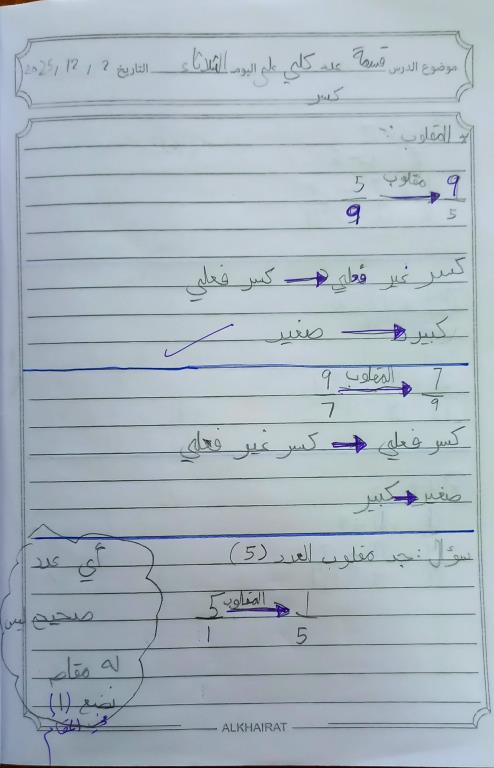 موضوع الدرس قسمة عدد كلي على اليوم الثلاثاء التاريخ 2 / 12 / 2025
كسر
المقلوب :-
5/9 مقلوب → 9/5
كسر غير فعلي → كسر فعلي
كبير → صغير
9/7 المقلوب → 7/9
كسر فعلي → كسر غير فعلي
صغير → كبير
سؤال : جد مقلوب العدد (5)
5/1 المقلوب → 1/5
أي عدد
صحيح ليس
له مقام
نضع (1)
في المقام
ALKHAIRAT